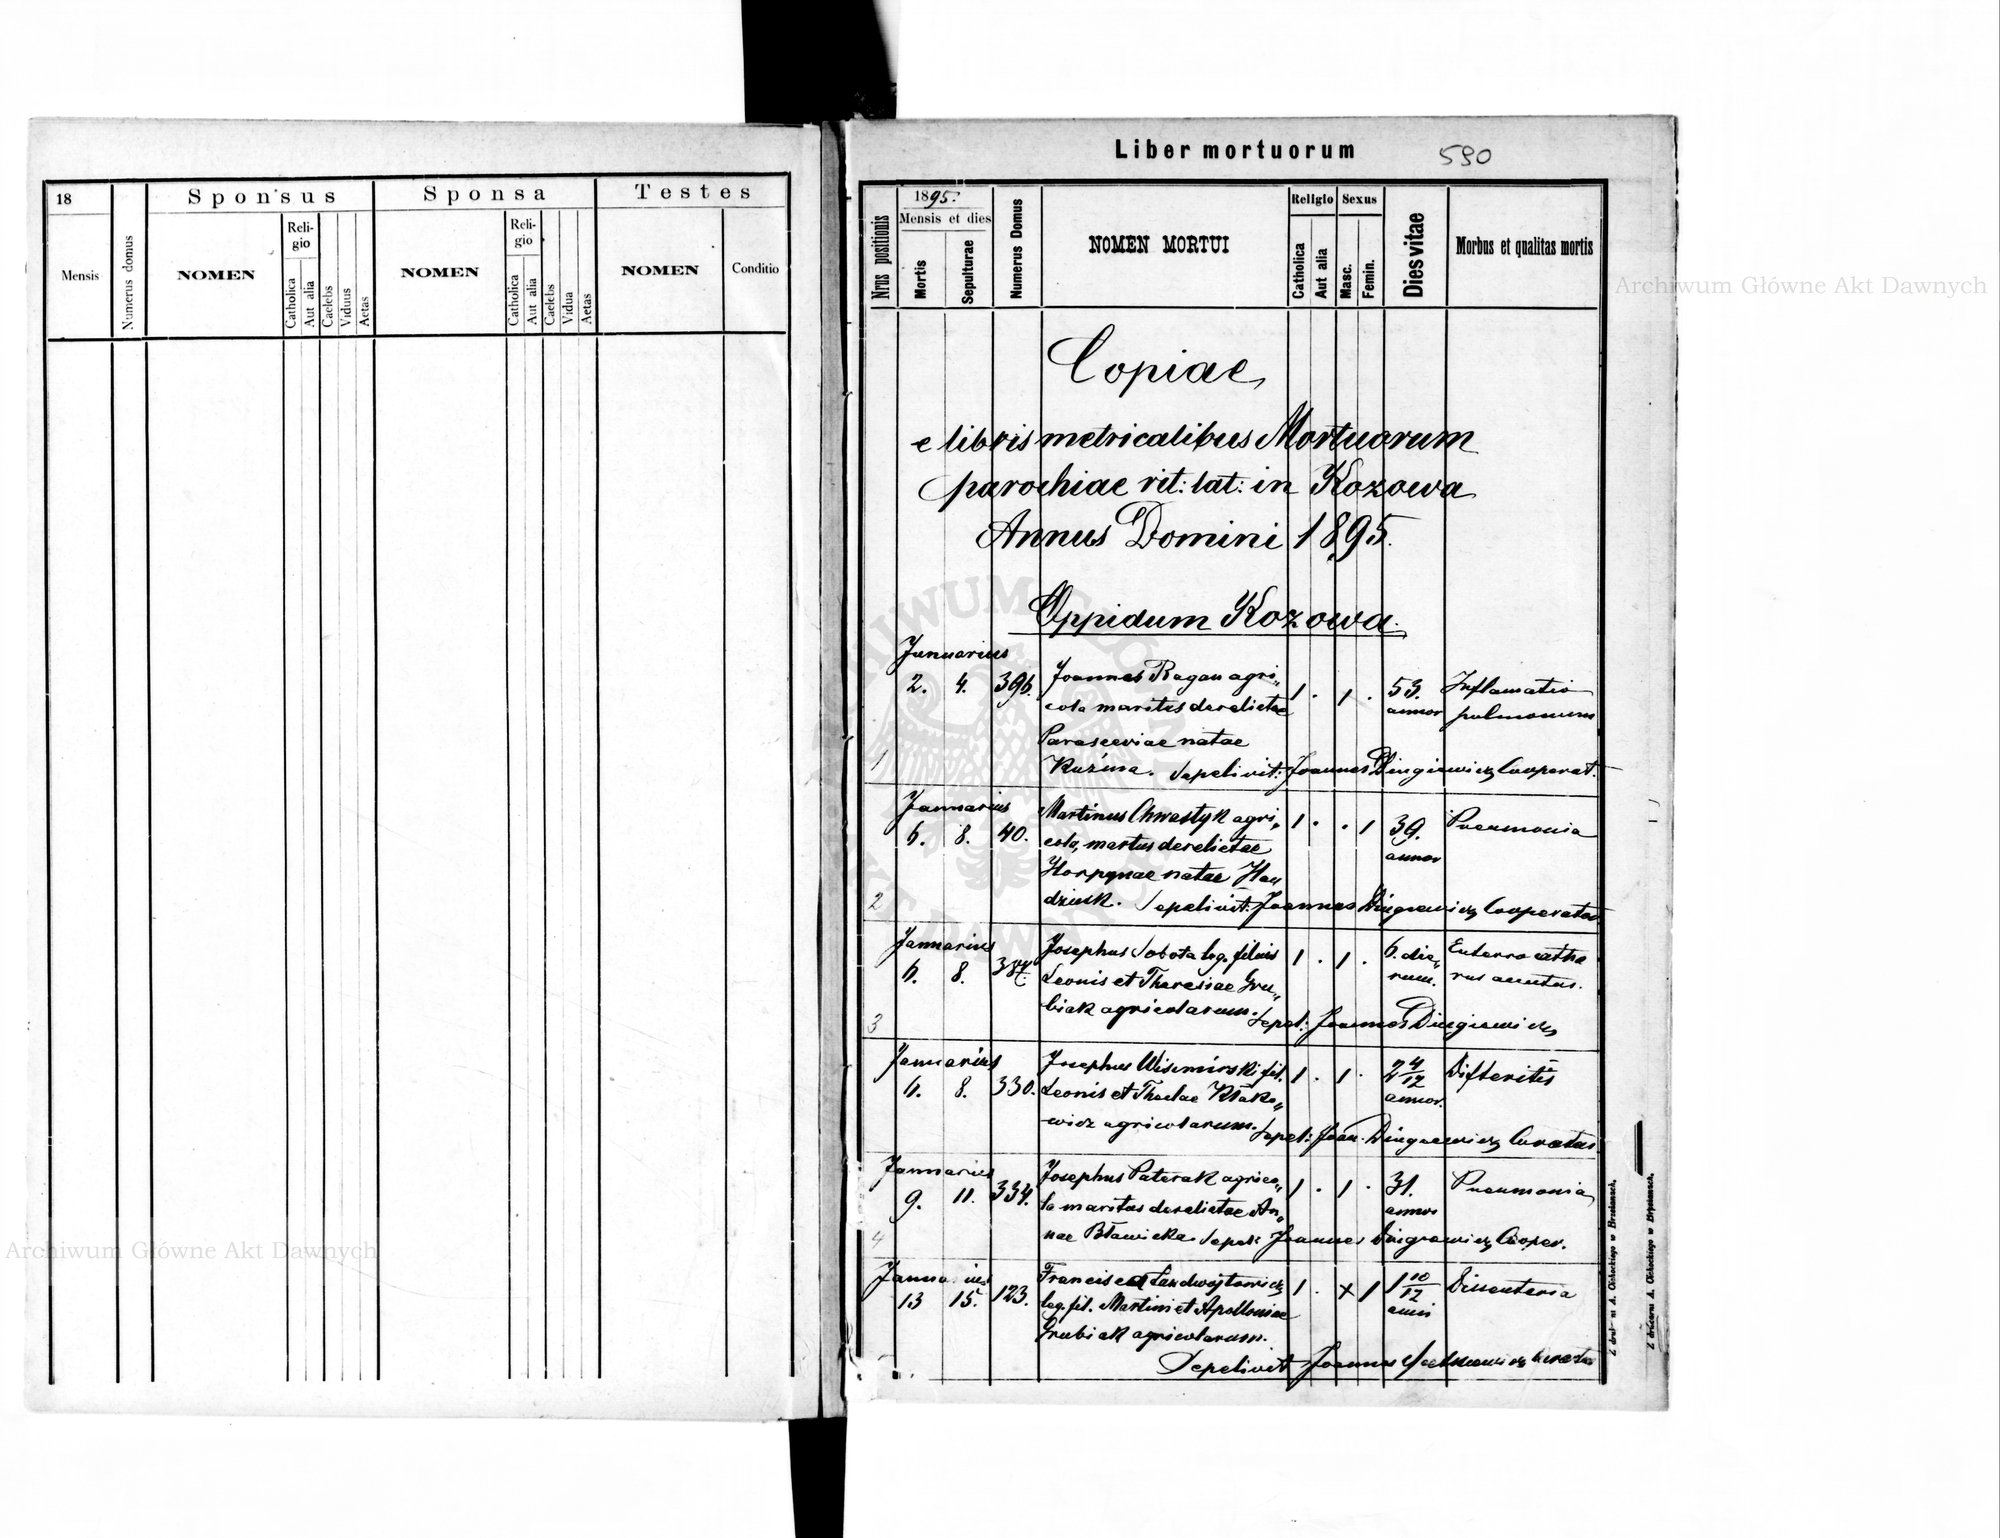 18
Mensis
Numerus domus
Sponsus
NOMEN
Reli-
gio
Catholica
Aut alia
Caelebs
Viduus
Aetas
Sponsa
NOMEN
Reli-
gio
Catholica
Aut alia
Caelebs
Vidua
Aetas
Testes
NOMEN
Conditio
Liber mortuorum
590
Nrus positionis
1895.
Mensis et dies
Mortis
Sepulturae
Numerus Domus
NOMEN MORTUI
Religio
Catholica
Aut alia
Sexus
Masc.
Femin.
Dies vitae
Morbus et qualitas mortis
Copiae
e libris metricalibus Mortuorum
parochiae rit: lat: in Kozowa
Annus Domini 1895.
Oppidum Kozowa.
Januarius
2. 4. 396. Joannes Ragan agri„ 1 . 1 . 53. Inflamatio
cola maritus derelictae annor pulmonum
Parasceviae natae
1 Kuźma. Sepelivit: Joannes Dingiewicz Cooperat.
Januarius
6. 8. 40. Martinus Chwestyk agri„ 1 . . 1 39. Pneumonia
cola, martus derelictae annor
Horpynae natae Hau
2 dziuk. Sepelivit: Joannes Dingiewicz Cooperator
Januarius
6. 8. Josephus Sobota leg. filius 1 . 1 . 6. die„ Enterrocatha
Leonis et Theresiae Gru„ rum. rus acutus.
biak agricolarum.
3 Sepel: Joannes Dingiewicz
Januarius
6. 8. 330. Josephus Wiśmirski fil. 1 . 1 . 2 4/12 Difteritis
Leonis et Theclae Kłako„ annor.
wicz agricolarum.
Sepel: Joan. Dingiewicz Curatus
Januarius
9. 11. 334. Josephus Paterak agrico„ 1 . 1 . 31. Pneumonia
la maritus derelictae An„ annor
4 nae Bławicka. Sepel: Joannes Dingiewicz Cooper.
Janua ius
13 15. 123. Francisca Landwójtowicz 1 . x 1 1 10/12 Dissenteria
leg. fil. Martini et Apolloniae anni
Grubiak agricolarum.
Sepelivit Joannes Curatus
Z druk ni A. Ochockiego w Brzeżanach.
Z drukarni A. Ochockiego w Brzeżanach.
Archiwum Główne Akt Dawnych
Archiwum Główne Akt Dawnych